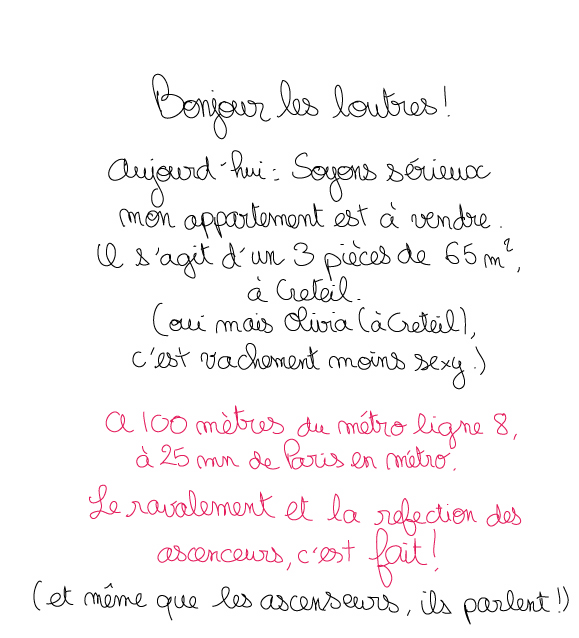 Bonjour les loutres!
Aujourd'hui : Soyons sérieux
mon appartement est à vendre.
Il s'agit d'un 3 pièces de 65 m²,
à Creteil.
(oui mais Olivia (à Creteil),
c'est vachement moins sexy.)
A 100 mètres du métro ligne 8,
à 25 mn de Paris en métro.
Le ravalement et la refection des
ascenceurs, c'est fait!
(et même que les ascenseurs, ils parlent!)